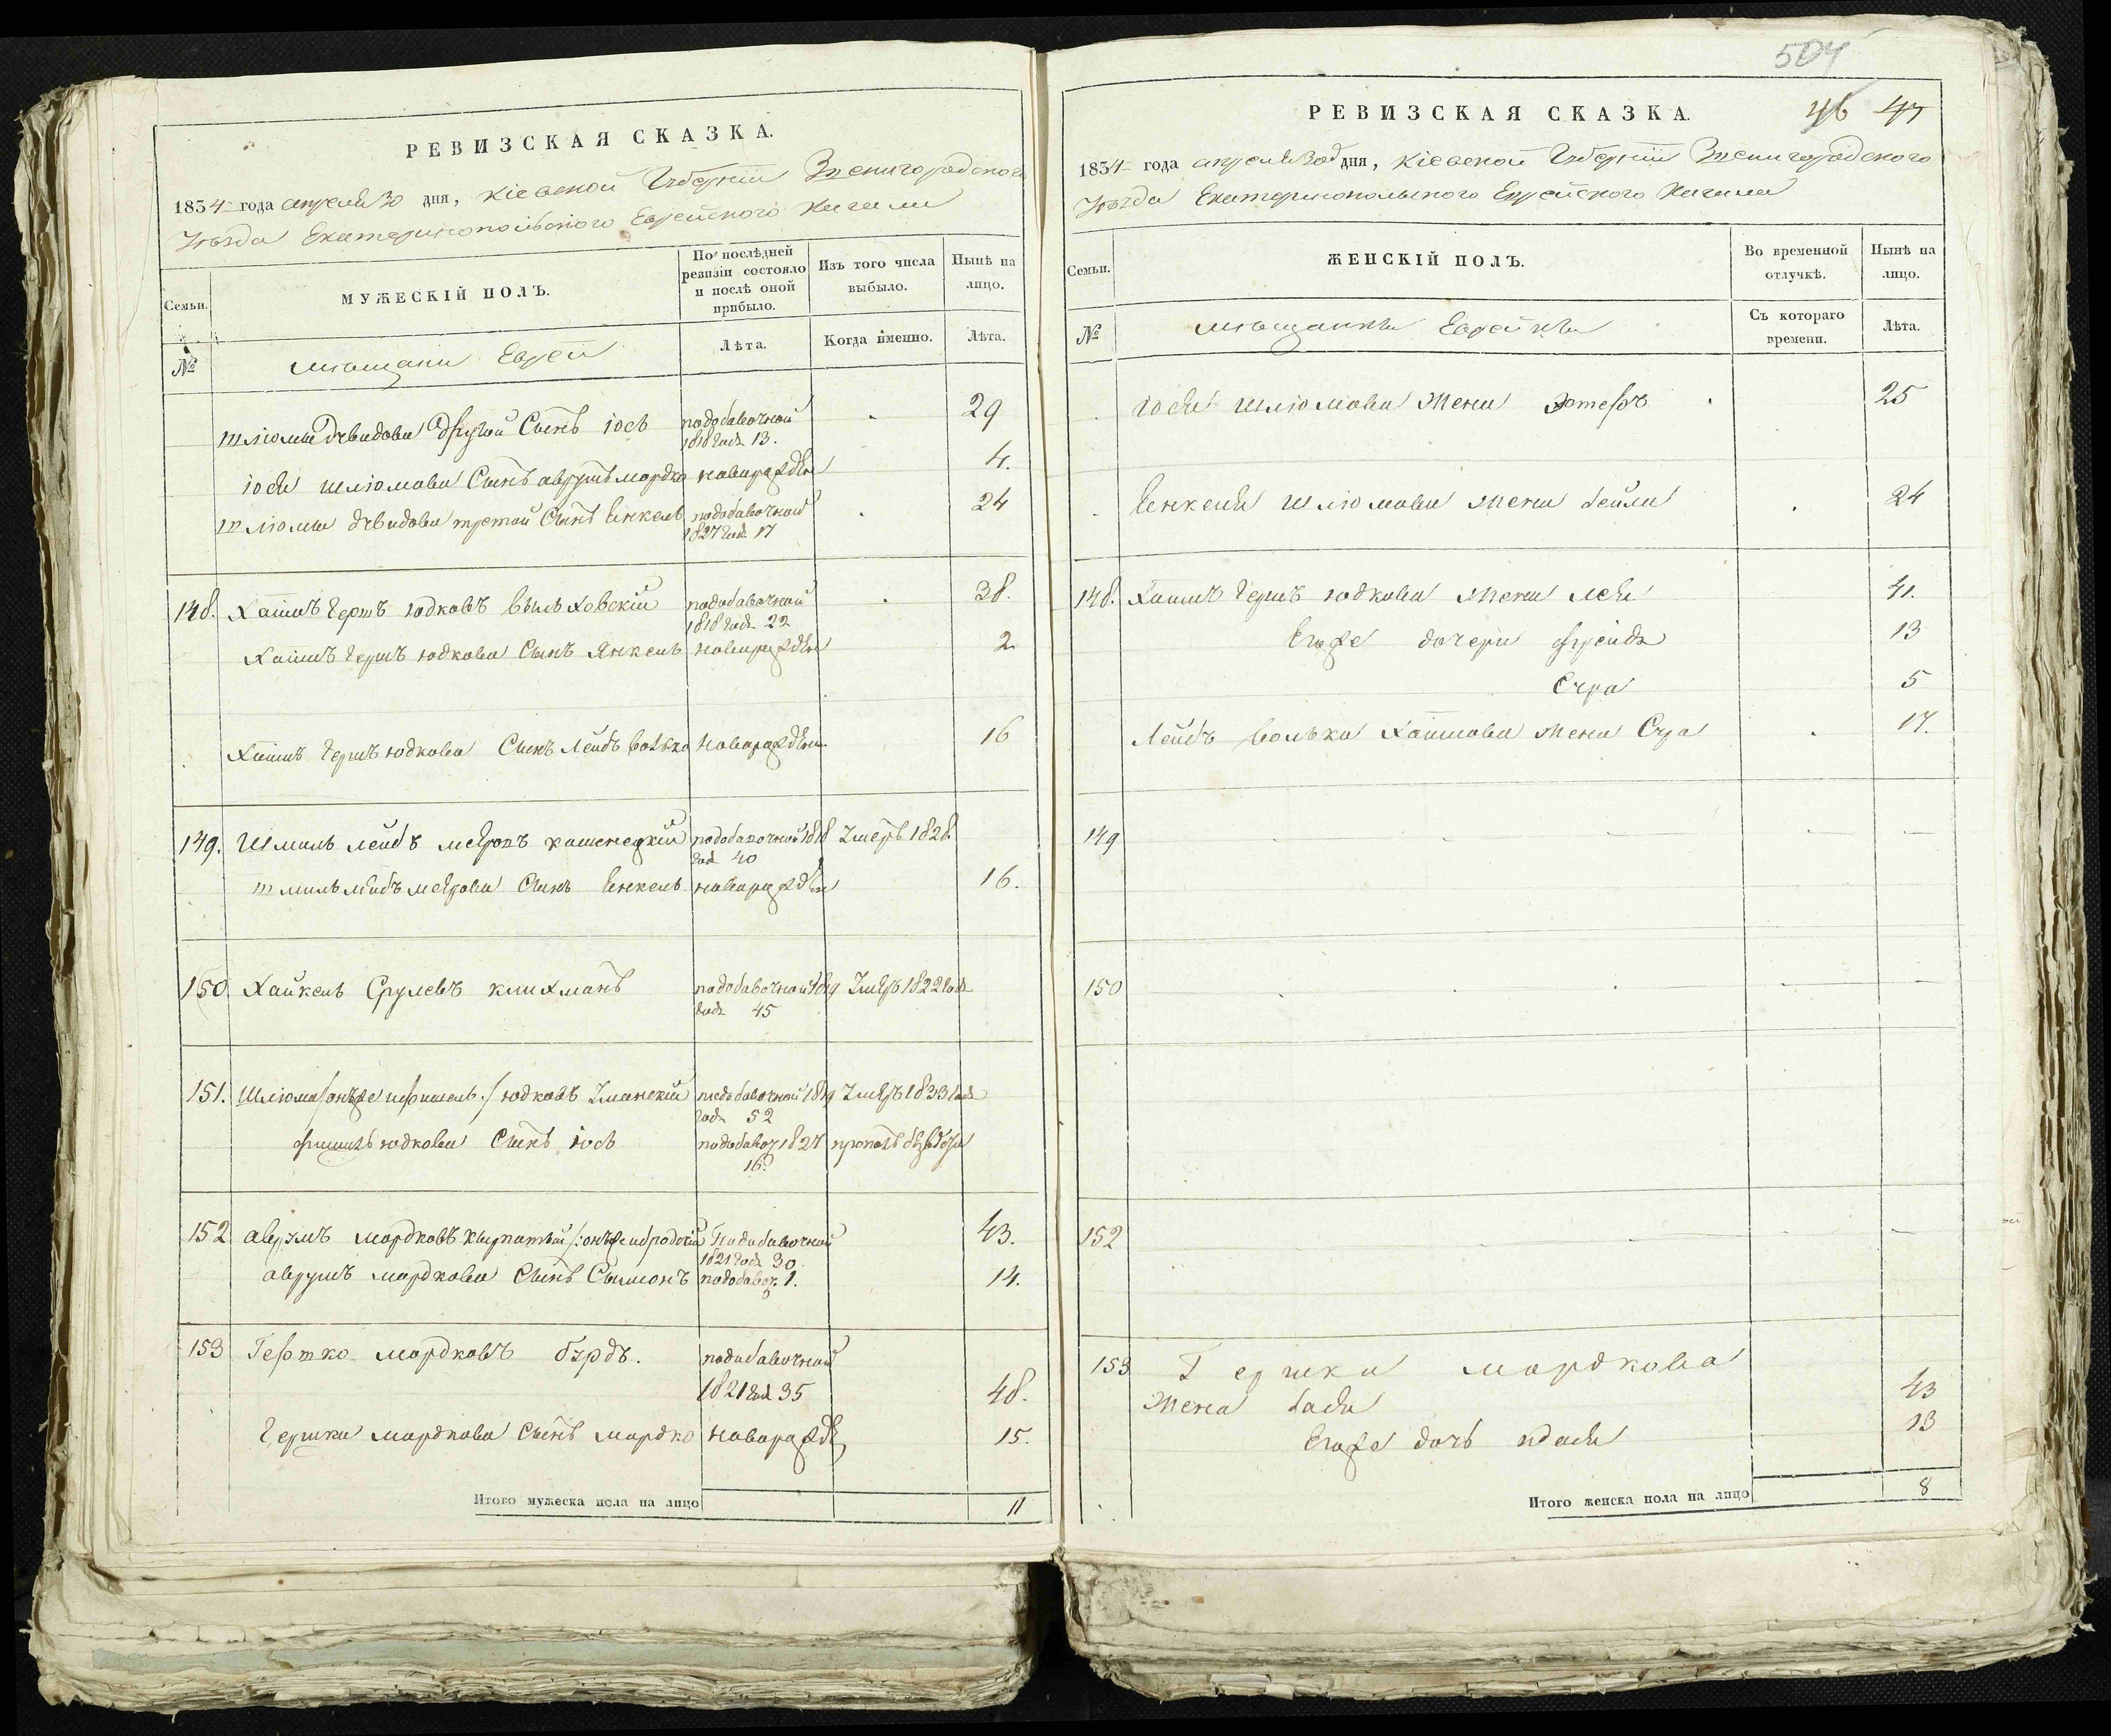 РЕВИЗСКАЯ СКАЗКА.
1834 года апреля 30 дня, Кіевской Губерніи Звенигородского
Уѣзда Екатеринопольского Еврейского Кагала
Семьи.
МУЖЕСКІЙ ПОЛЪ.
По послѣдней ревизіи состояло и послѣ оной прибыло.
Изъ того числа выбыло.
Нынѣ на лицо.
№
мѣщани Евреи
Лѣта.
Когда именно.
Лѣта.
Шлюмы Дувидова другой Сынъ Іосъ подобавочной 29
1818 года 13.
Іося Шлюмова Сынъ аврумъ мордко новорожден 4.
Шлюмы дувидова третой Сынъ Енкель подобавочной 24
1827 года 17
148. Хаимъ Гершъ юдковъ Вильховскій подобавочной 38.
1818 года 22
Хаимъ Гершъ юдкова Сынъ Янкель новорожден 2
Хаимъ Гершъ юдкова Сынъ Лейбъ волько новорожден 16
149. Шмиль лейбъ мееровъ каменецкій подобавочной 1818 Умеръ 1828.
года 40
шмиль лейбъ меерова Сынъ Енкель новорожден 16.
150 Хайкель Срулевъ клихманъ подобавочной 1819 Умеръ 1822 года
года 45
151. Шлюма /: онъже и фишель :/ юдковъ Уманскій подобавочной 1819 Умеръ 1833 года
года 52
фишель юдкова Сынъ Іосъ подобавоч 1827 пропалъ
16.
152 аврумъ мордковъ /: онъже и бродскій подобавочной 43.
1821 года 30
аврумъ мордкова Сынъ Сымонъ подобавоч. 1. 14.
153 Гершко мордковъ бурдъ. подобавочной
1821 года 35 48.
Гершка мордкова Сынъ мордко новорожде 15.
Итого мужеска пола на лицо 11
504
РЕВИЗСКАЯ СКАЗКА. 46 47
1834 года апреля 30 дня, Кіевской Губерніи Звенигородского
Уѣзда Екатеринопольского Еврейского Кагала
Семьи.
ЖЕНСКІЙ ПОЛЪ.
Во временной отлучкѣ.
Нынѣ на лицо.
№
мѣщанки Еврейки
Съ котораго времени.
Лѣта.
Іося Шлюмова жена Эстеръ 25
Енкеля Шлюмова жена бейла 24
148. Хаимъ Гершъ юдкова жена лея 41.
Егоже дочери фрейда 13
Сура 5
Лейбъ волька Хаимова жена Сура 17.
149
150
152
153 Гершка мордкова
жена бася 43
Егоже дочь адася 13
Итого женска пола на лицо 8